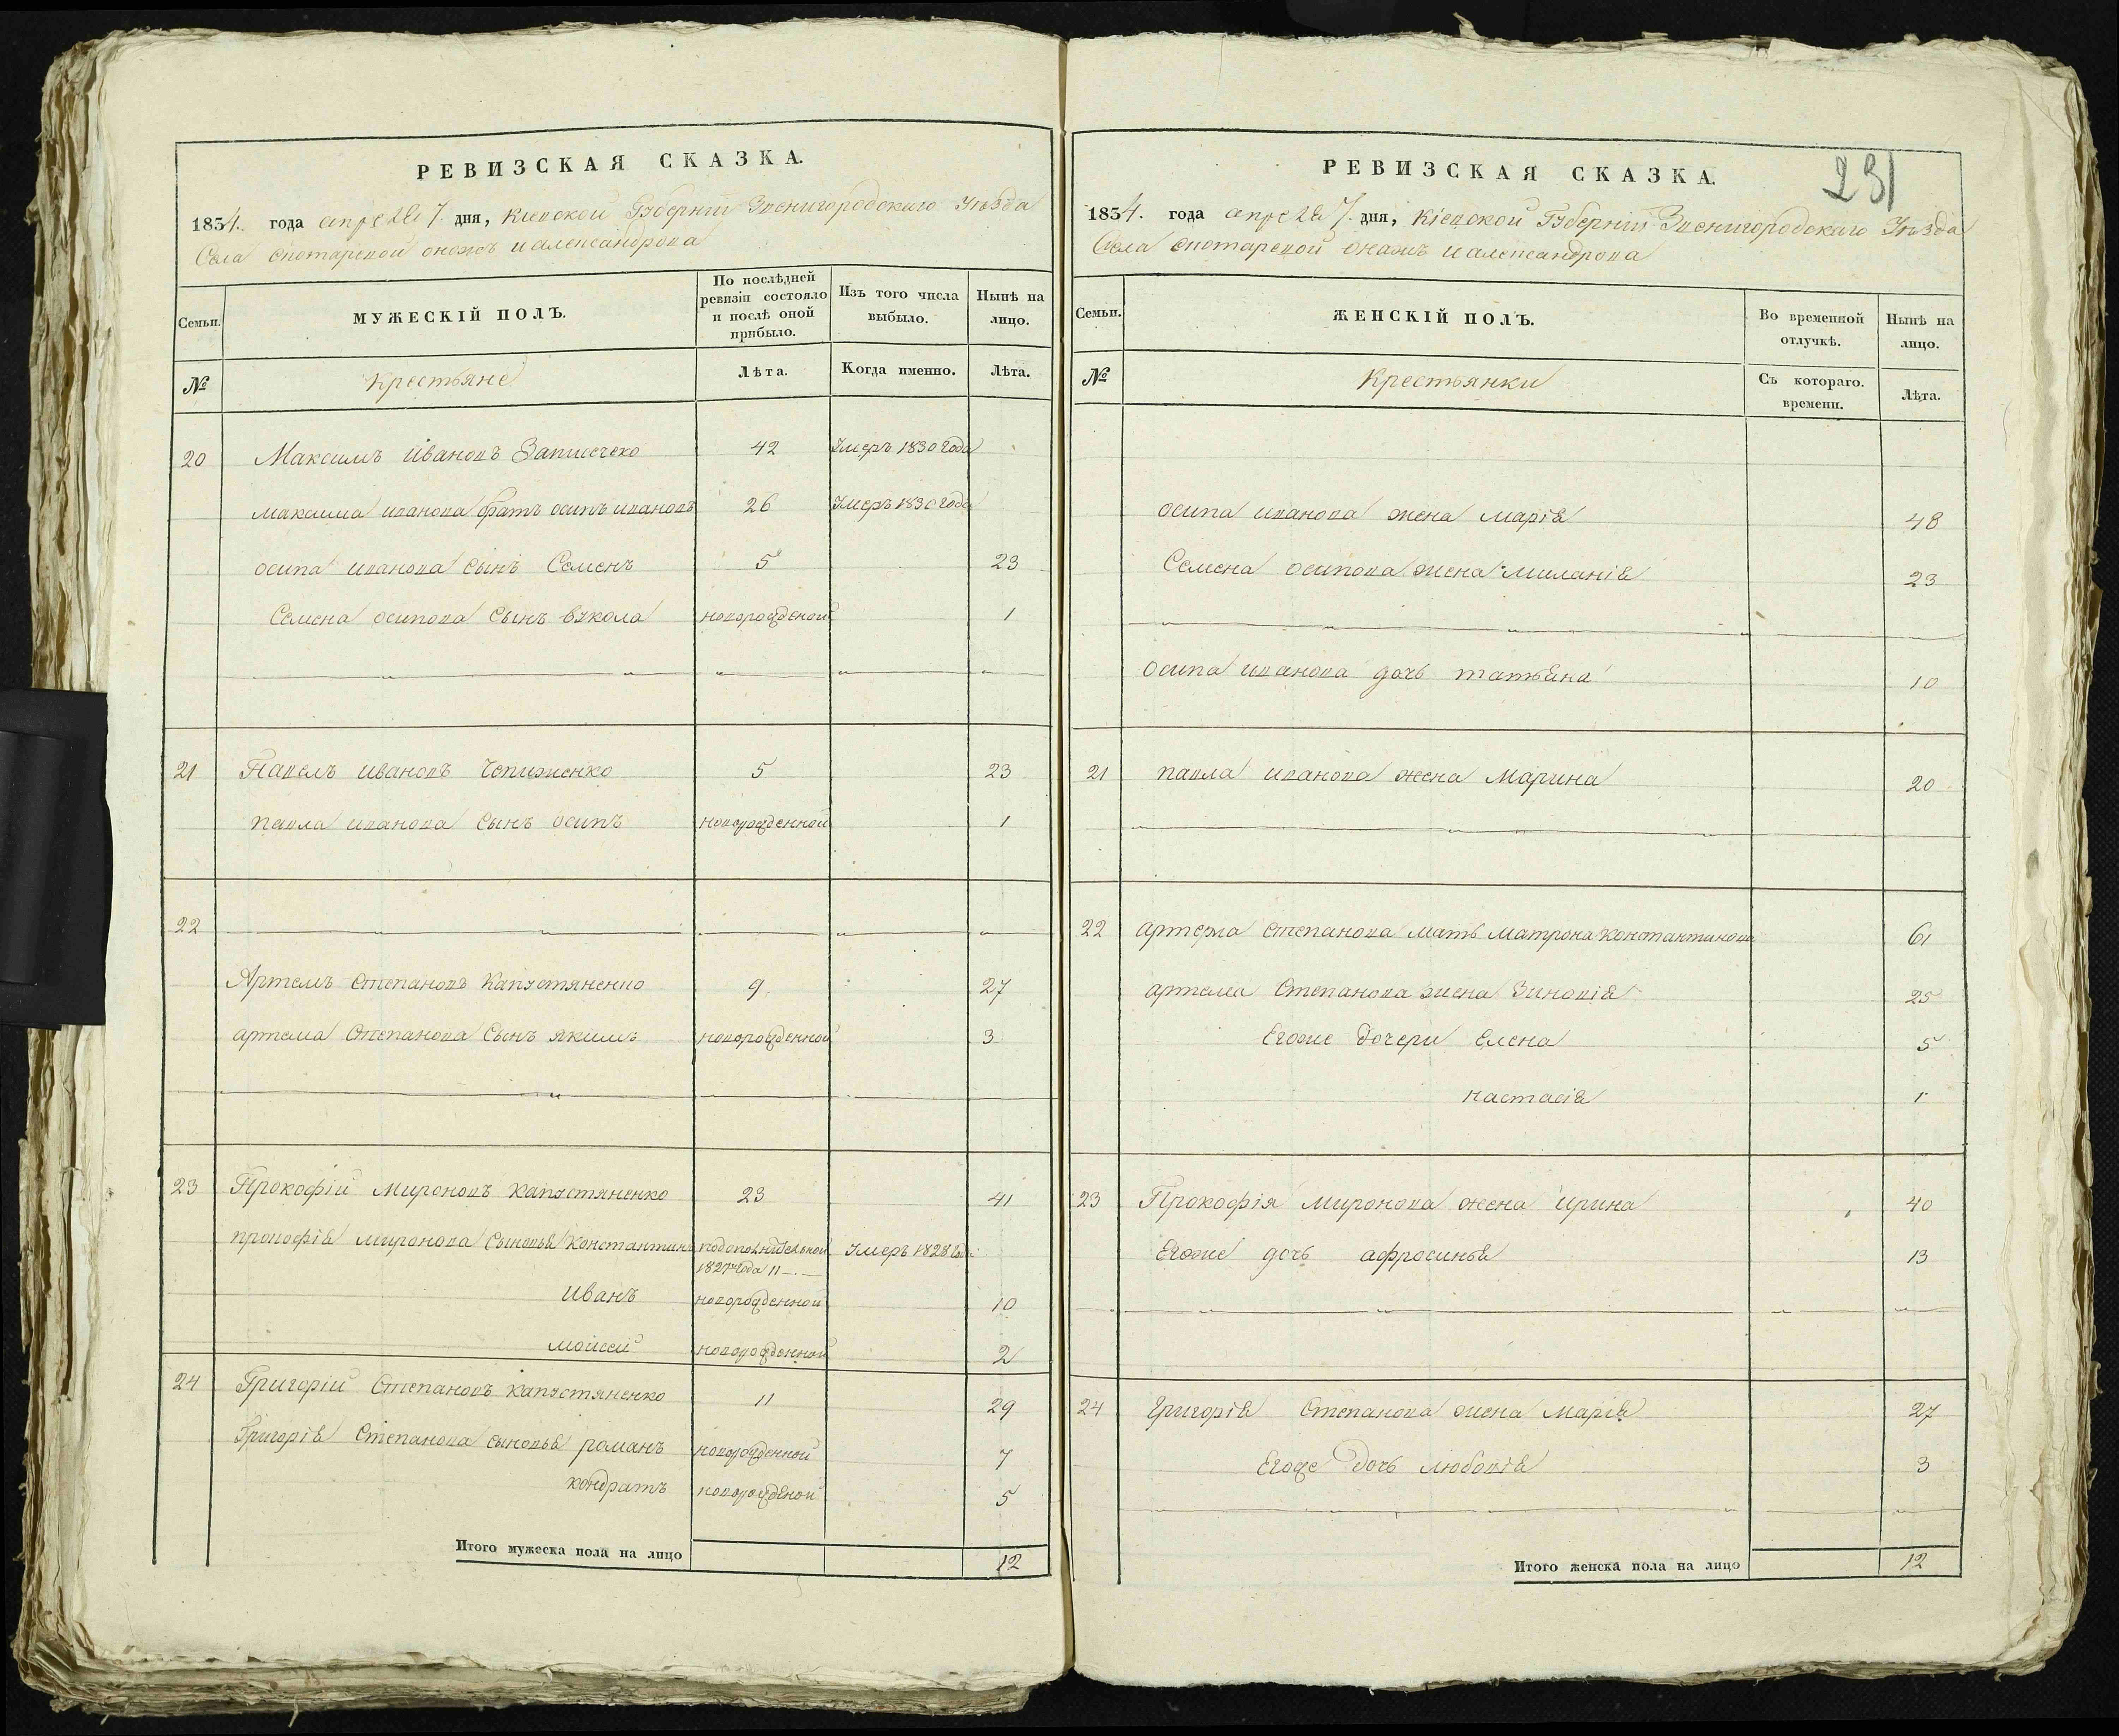 РЕВИЗСКАЯ СКАЗКА.
1834. года апреля 7. дня, Киевской Губернии Звенигородскаго Уѣзда
Села
иалександрова
Семьи.
МУЖЕСКІЙ ПОЛЪ.
По послѣдней ревизіи состояло и послѣ оной прибыло.
Изъ того числа выбыло.
Нынѣ на лицо.
№
Крестьяне
Лѣта.
Когда именно.
Лѣта.
20 Максимъ Ивановъ 42 Умеръ 1830 года
максима иванова братъ осипъ ивановъ 26 Умеръ 1830 года
осипа иванова сынъ Семенъ 5 23
Семена осипова Сынъ вукола новорожденой 1
21 Павелъ ивановъ Чепиженко 5 23
павла иванова сынъ осипъ новорожденной 1
22
Артемъ Степановъ Капустяненко 9 27
артема Степанова Сынъ якимъ новорожденной 3
23 Прокофій Мироновъ капустяненко 23 41
прокофія миронова Сыновья Константинъ Умеръ 1828 года
1827 года 11
Иванъ новорожденной 10
моисей новорожденной 2
24 Григорій Степановъ капустяненко 11 29
Григорія Степанова сыновья романъ новорожденной 7
кондратъ новорожденой 5
Итого мужеска пола на лицо 12
231
РЕВИЗСКАЯ СКАЗКА.
1834. года апреля 7. дня, Кіевской Губерніи Звенигородскаго Уѣзда
Села
иалександрова
Семьи.
ЖЕНСКІЙ ПОЛЪ.
Во временной отлучкѣ.
Нынѣ на лицо.
№
Крестьянки
Съ котораго. времени.
Лѣта.
осипа иванова жена марія 48
Семена осипова жена миланія 23
осипа иванова дочь татьяна 10
21 павла иванова жена Марина 20
22 артема степанова мать матрона константинова 61
артема Степанова жена Зиновія 25
Егоже дочери Елена 5
настасія 1
23 Прокофія миронова жена ирина 40
Егоже дочь афросинья 13
24 Григорія Степанова жена марія 27
Егоже дочь любовія 3
Итого женска пола на лицо 12